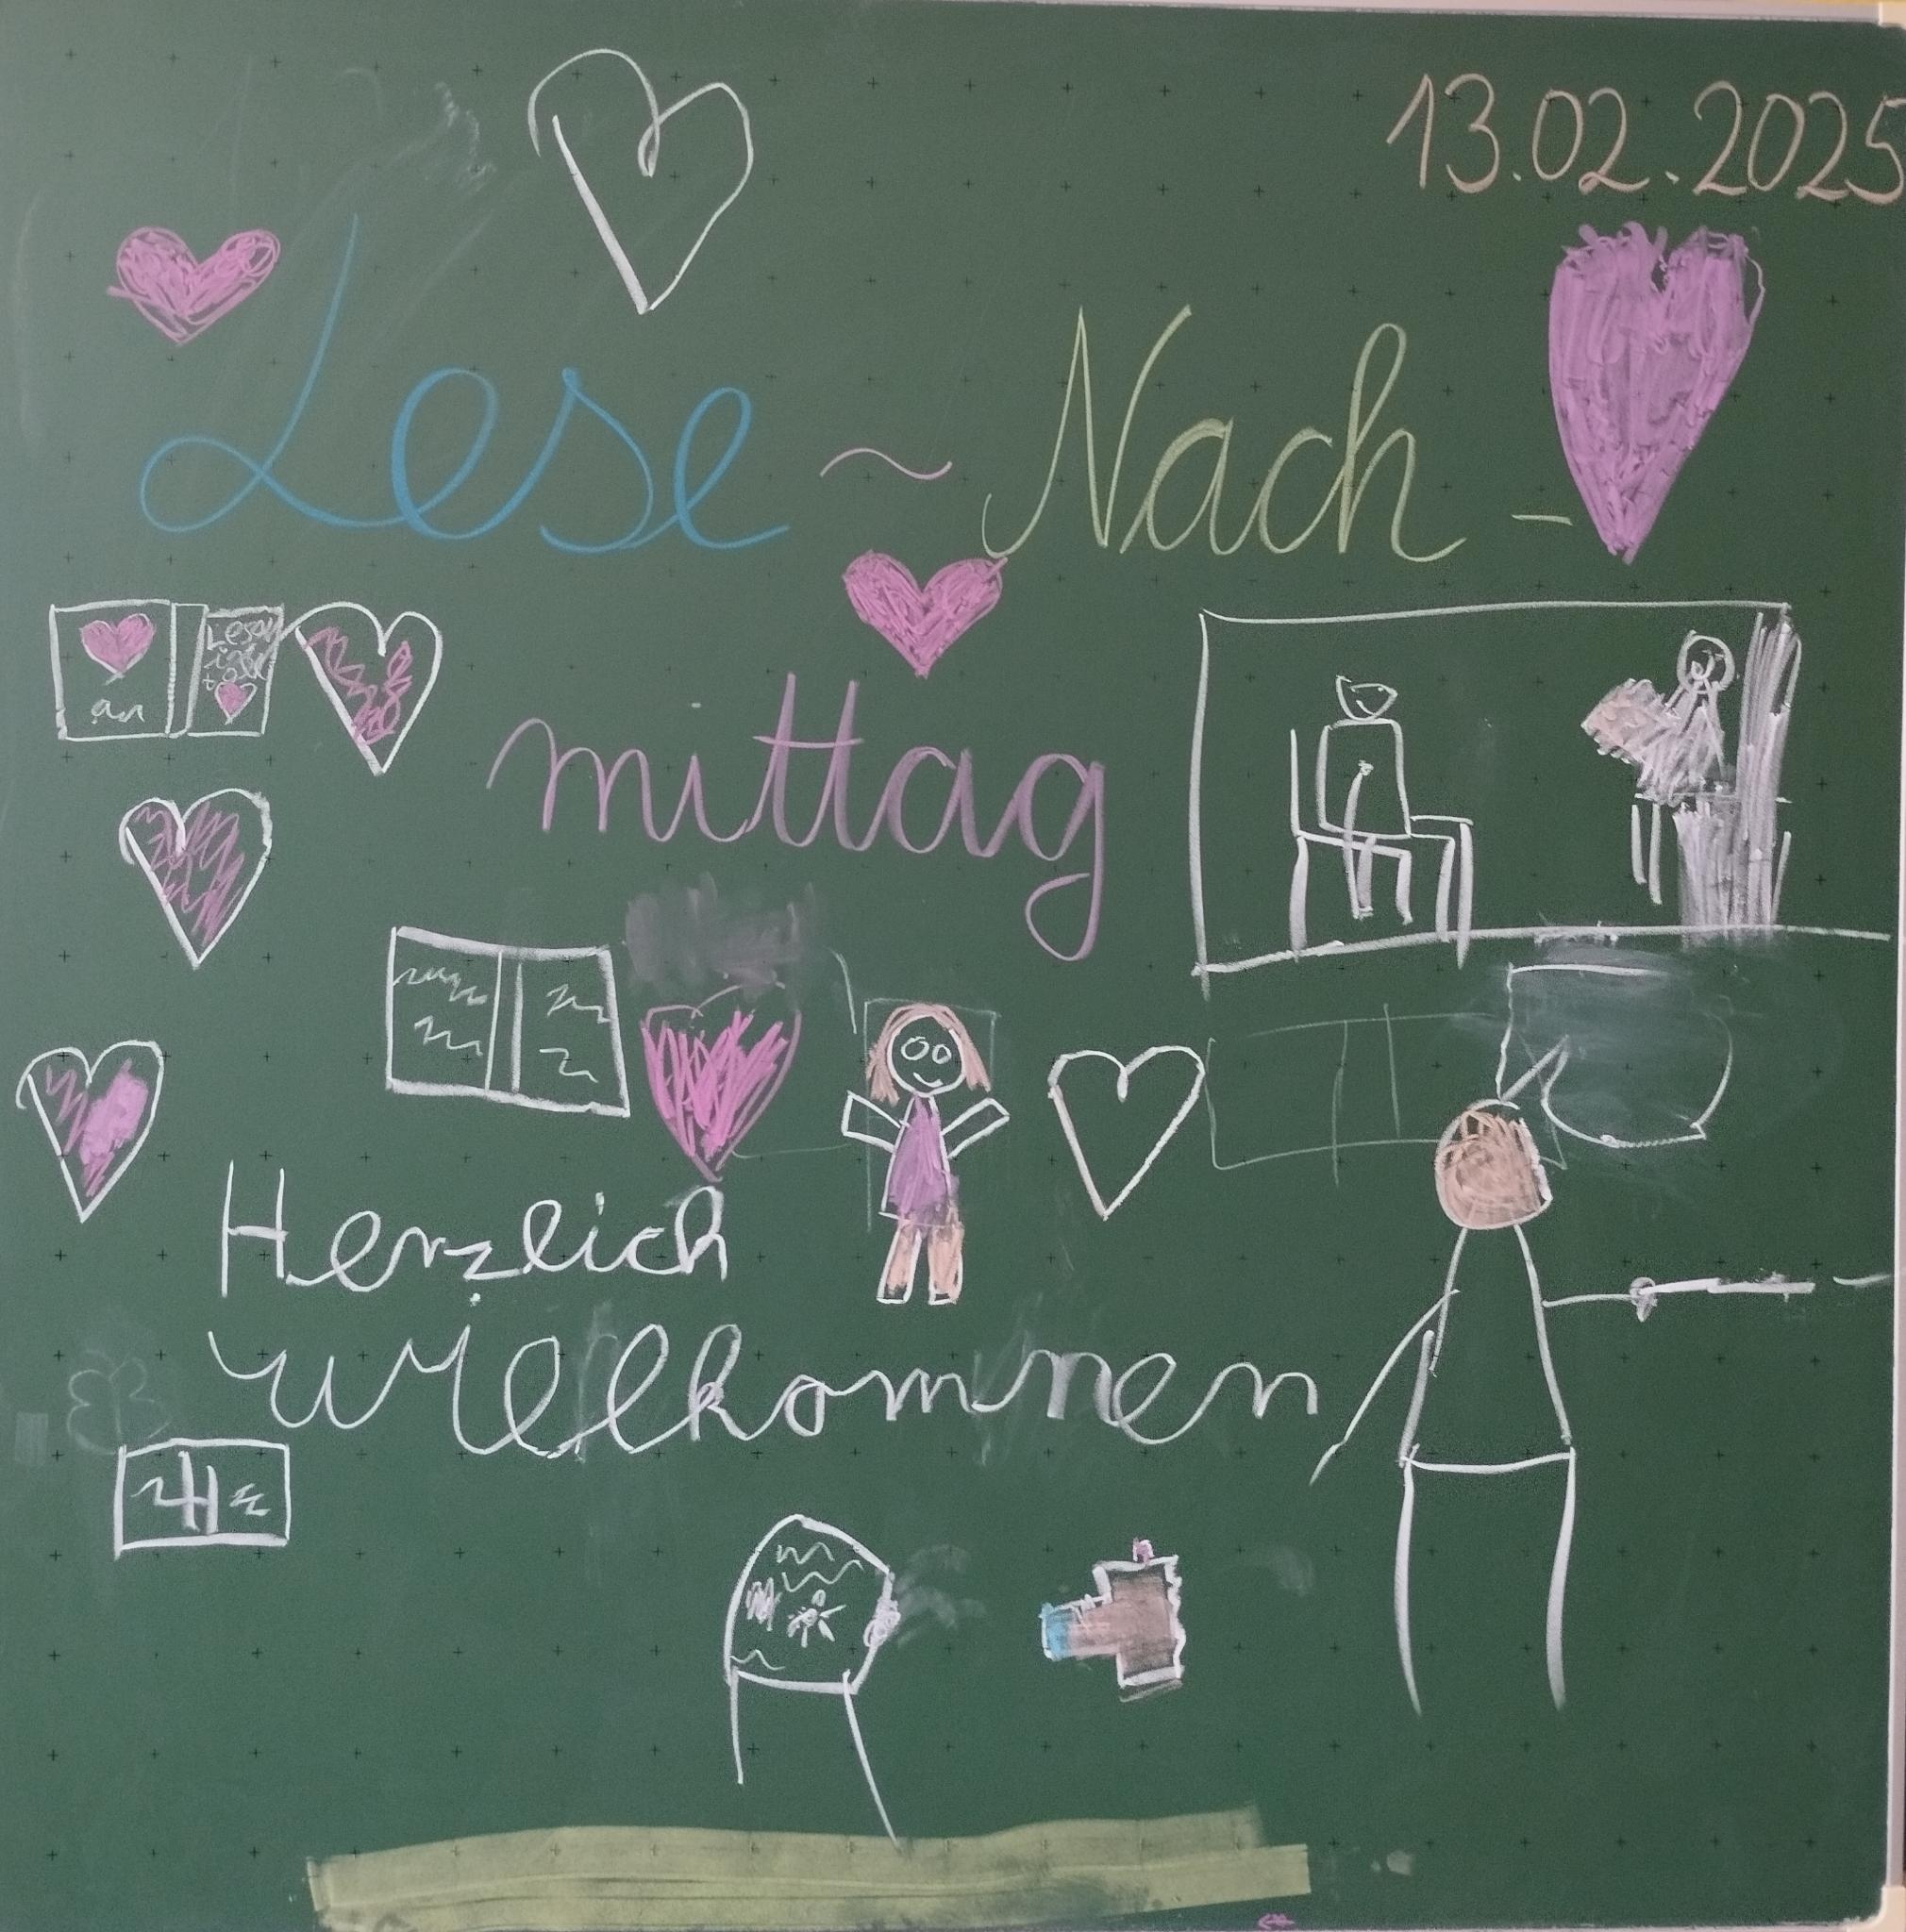 13.02.2025
Lese ~ Nach -
mittag
Lesen
ist
toll
an
Herzlich
Willkommen